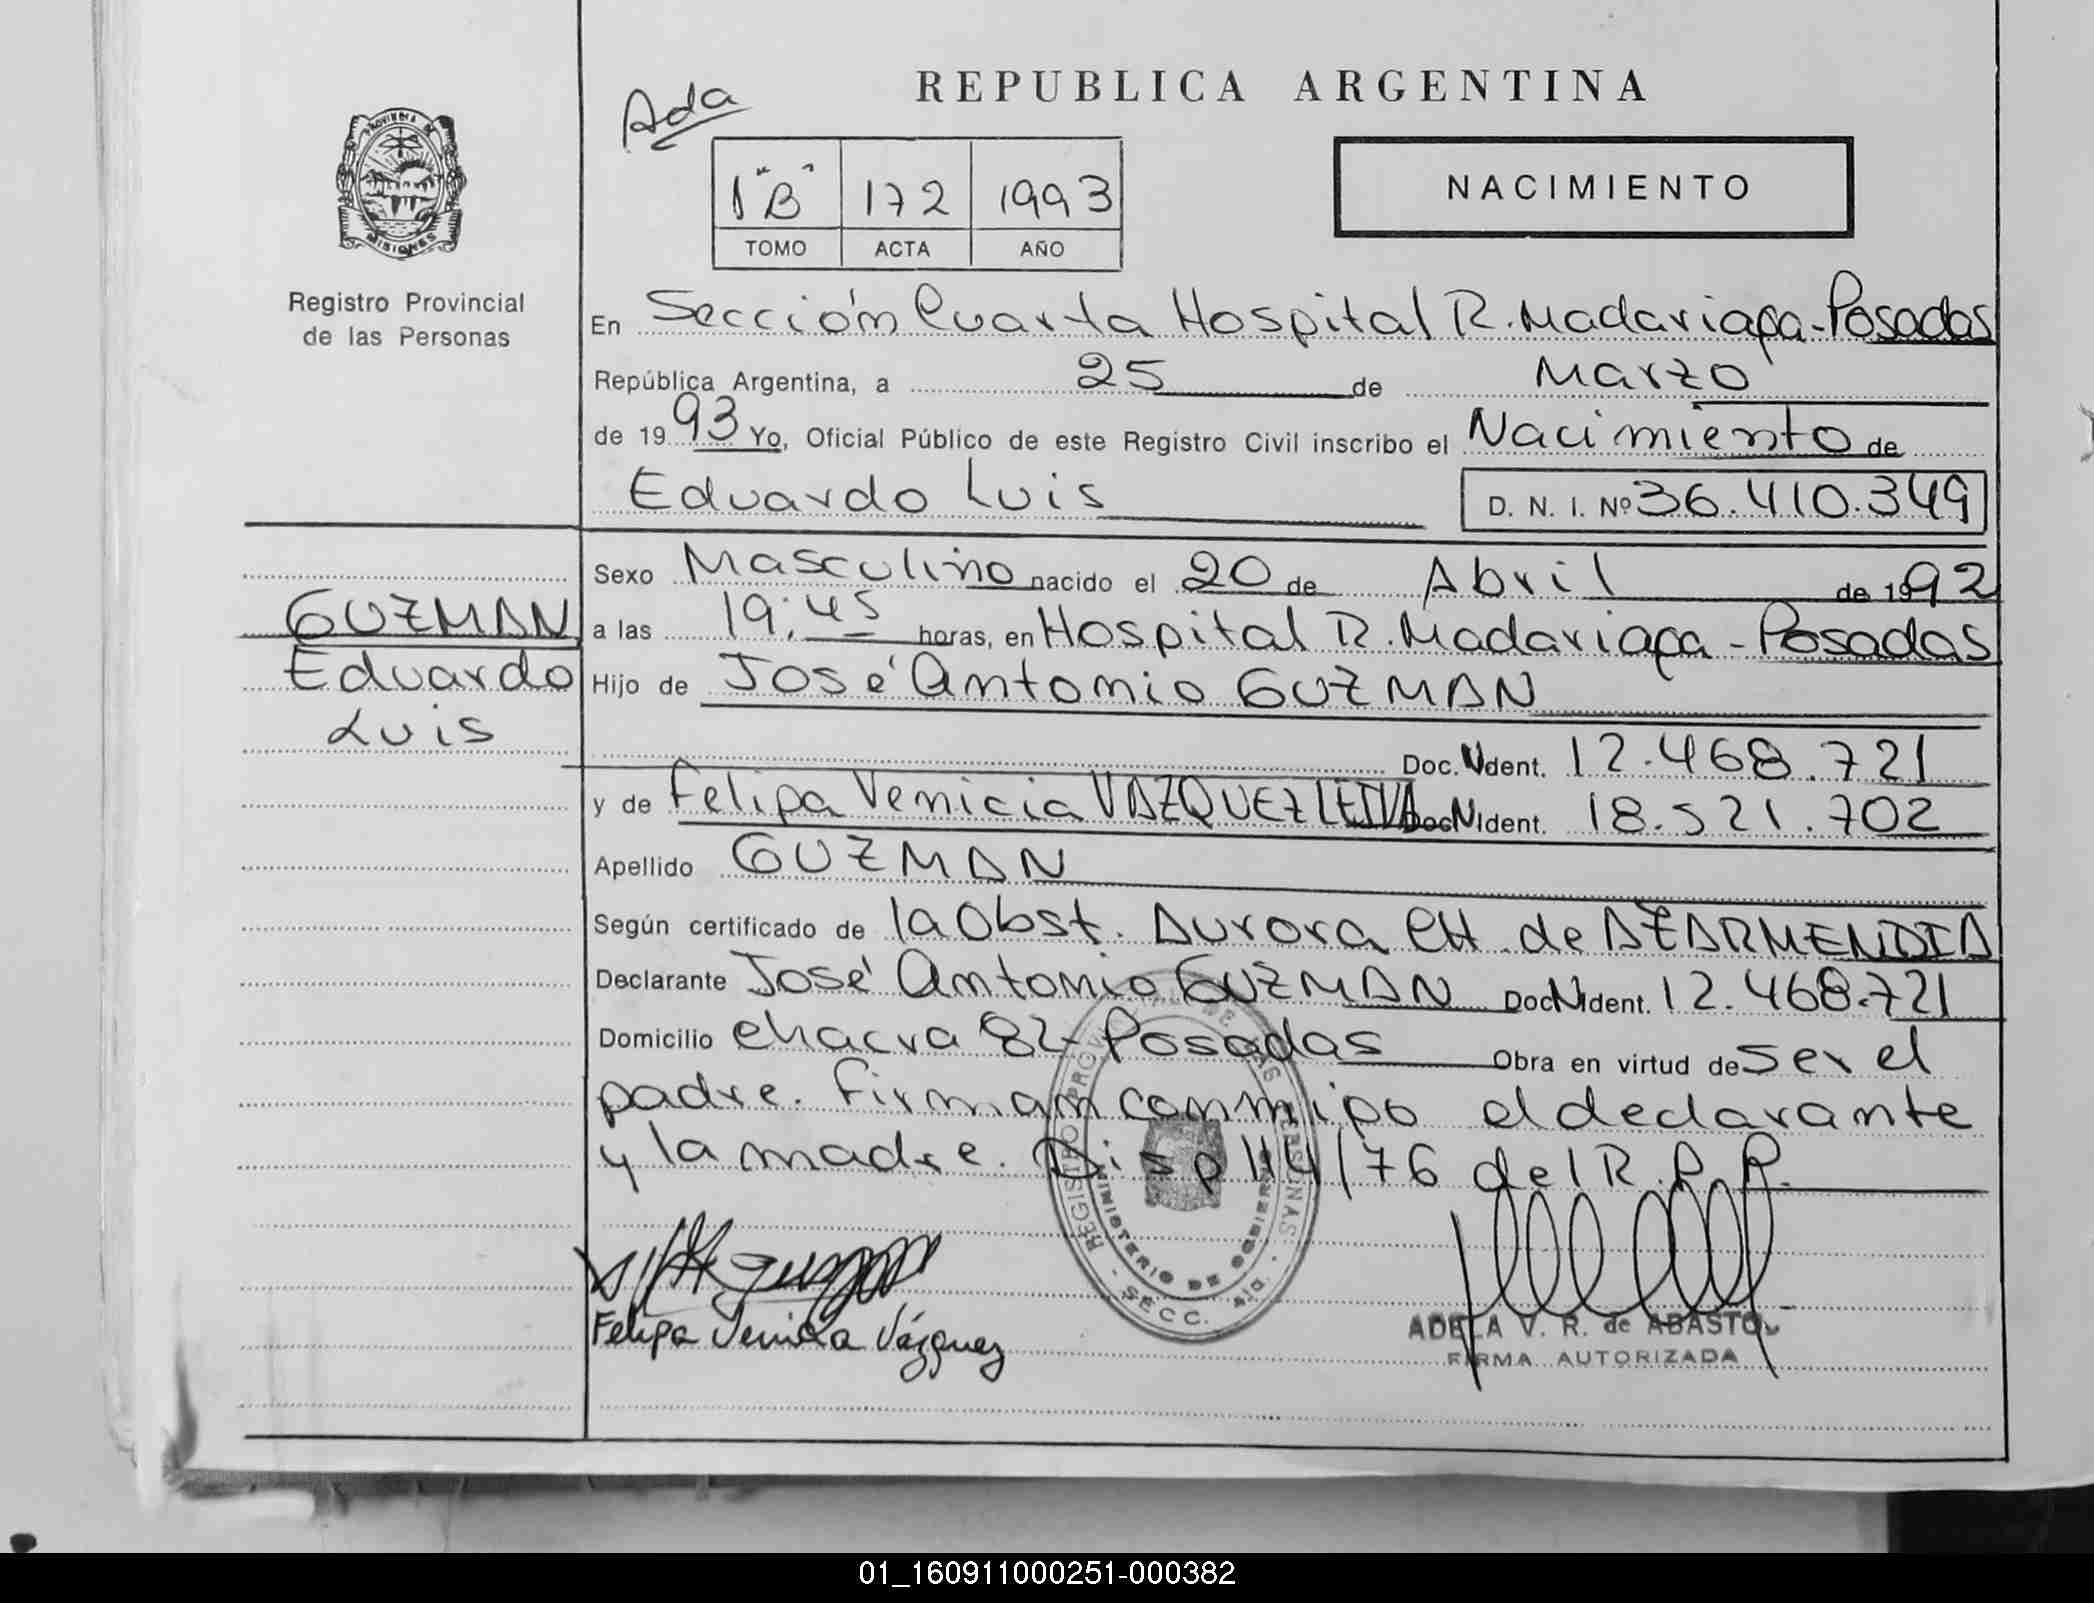 REPUBLICA ARGENTINA
Ada
1 "B" 172 1993
TOMO ACTA AÑO
NACIMIENTO
PROVINCIA DE MISIONES
Registro Provincial
de las Personas
En Sección Cuarta Hospital R. Madariaga - Posadas
República Argentina, a 25 de Marzo
de 1993 Yo, Oficial Público de este Registro Civil inscribo el Nacimiento de
Eduardo Luis D. N. I. Nº 36.410.349
Sexo Masculino nacido el 20 de Abril de 1992
GUZMAN
a las 19:45 horas, en Hospital R. Madariaga - Posadas
Eduardo
Hijo de José Antonio GUZMAN
Luis
Doc. N Ident. 12.468.721
y de Felipa Venicia VAZQUEZ LEIVA Doc N Ident. 18.521.702
Apellido GUZMAN
Según certificado de la Obst. Aurora CH. de AZARMENDIA
Declarante José Antonio GUZMAN Doc N Ident. 12.468.721
Domicilio chacra 82 - Posadas Obra en virtud de ser el
padre. Firman conmigo el declarante
y la madre. Disp 114/76 del R. P. P.
REGISTRO PROVINCIAL DE LAS PERSONAS
MINISTERIO DE GOBIERNO
SECC. 4ta.
Felipa Venicia Vázquez
ADELA V. R. de ABASTO
FIRMA AUTORIZADA
01_160911000251-000382